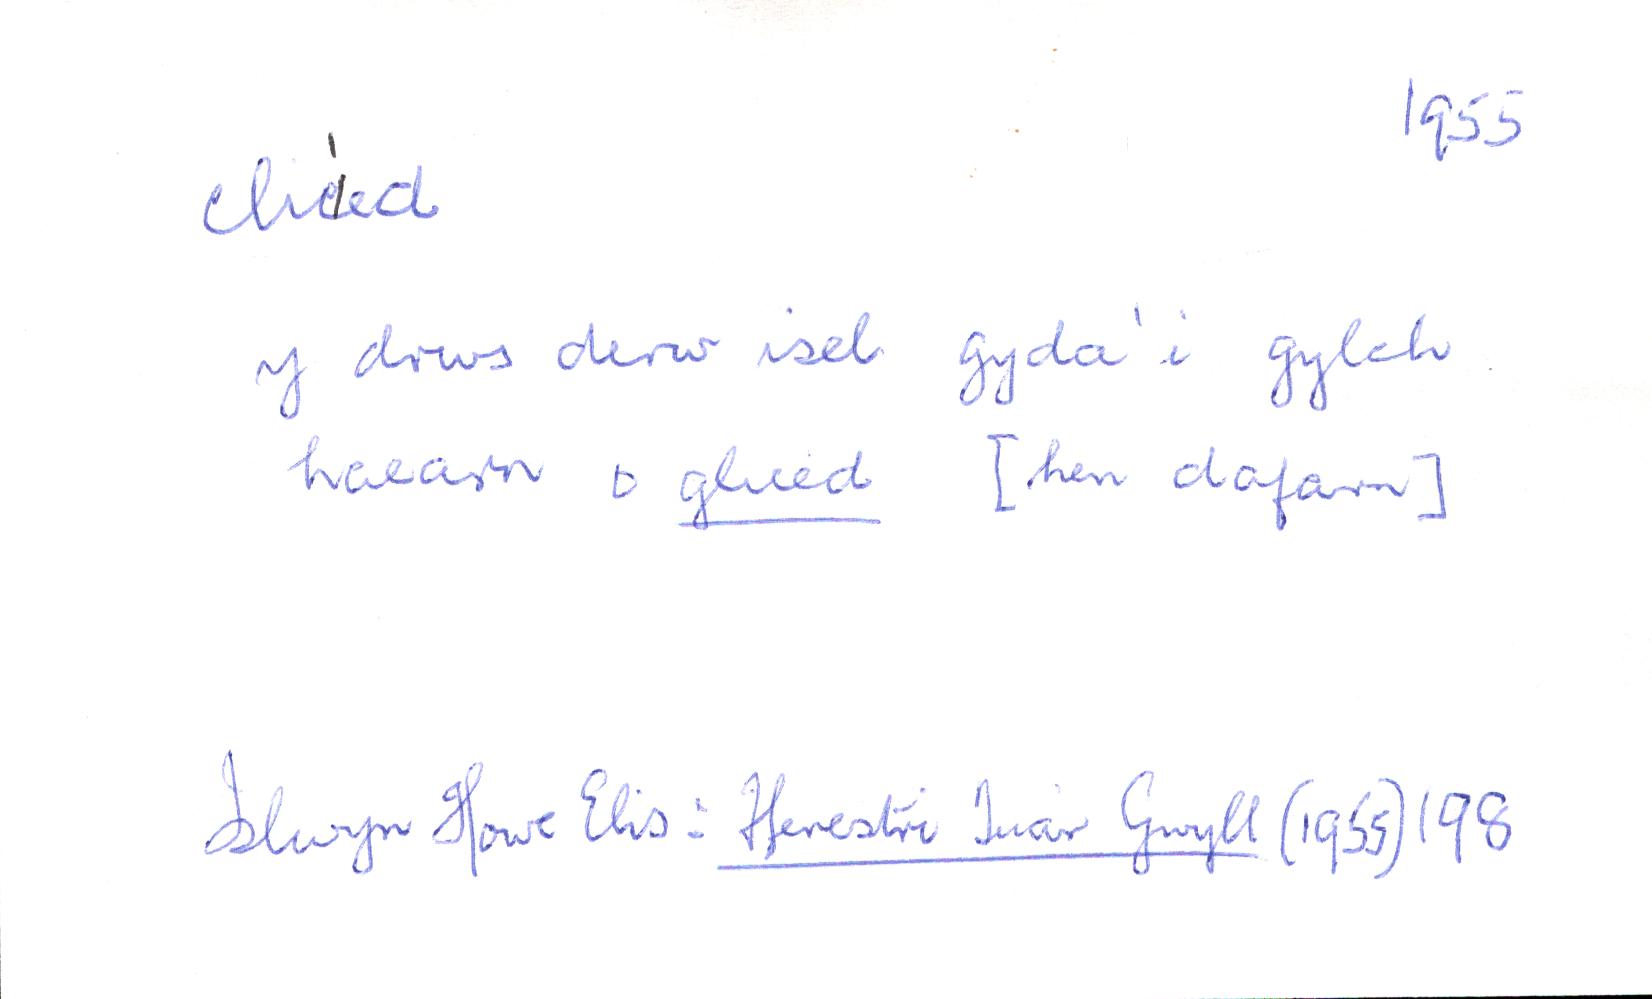 1955
clicied
y drws derw isel gyda'i gylch
haearn o glicied [hen dafarn]
Islwyn Ffowc Elis: Ffenestri Tua'r Gwyll (1955) 198